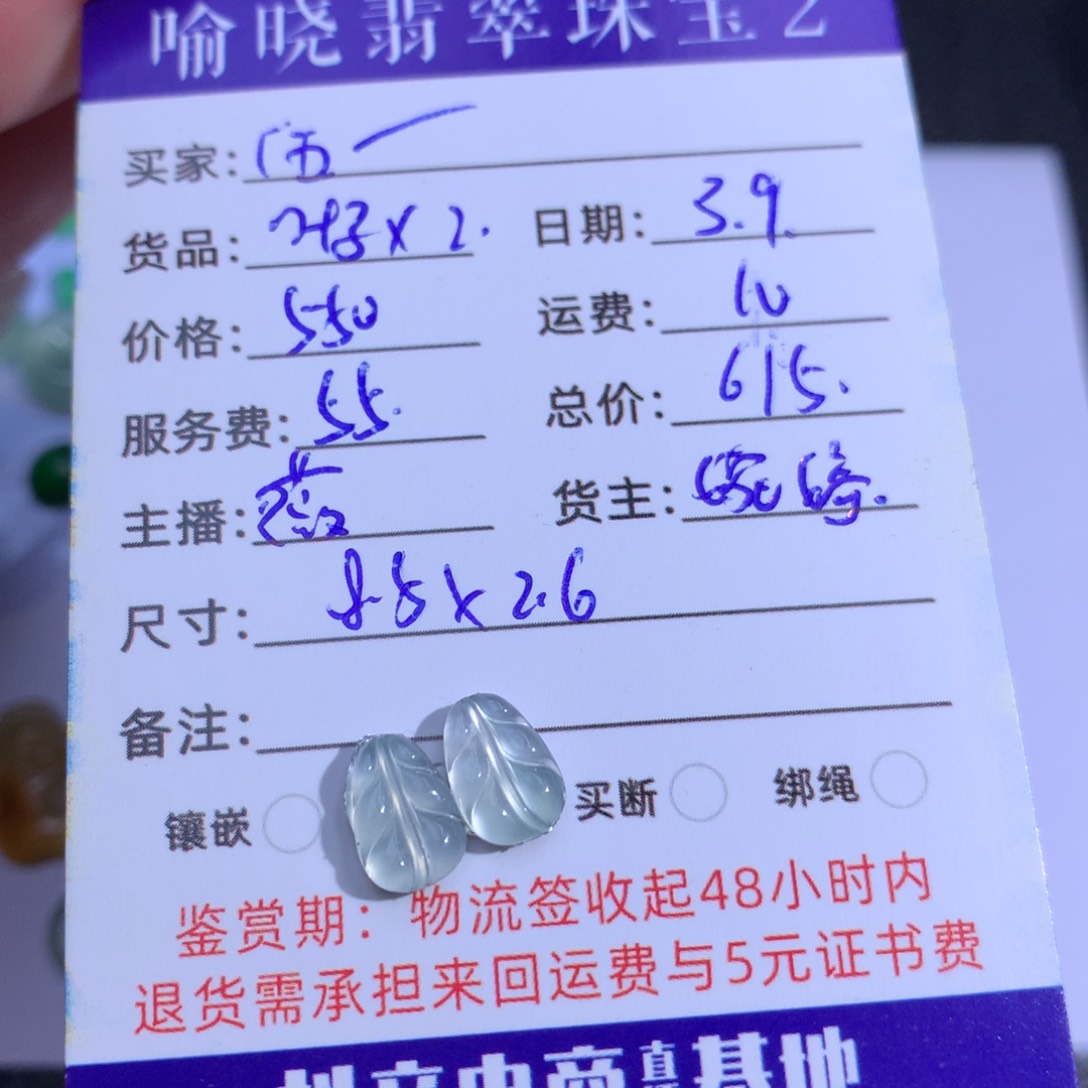 喻晓翡翠珠宝2
买家: 伍一
货品: ×2. 日期: 3.9.
价格: 550 运费: 10
服务费: 55. 总价: 615.
主播: 薇 货主:
尺寸: ×2.6
备注:
镶嵌 买断 绑绳
鉴赏期：物流签收起48小时内
退货需承担来回运费与5元证书费
基地